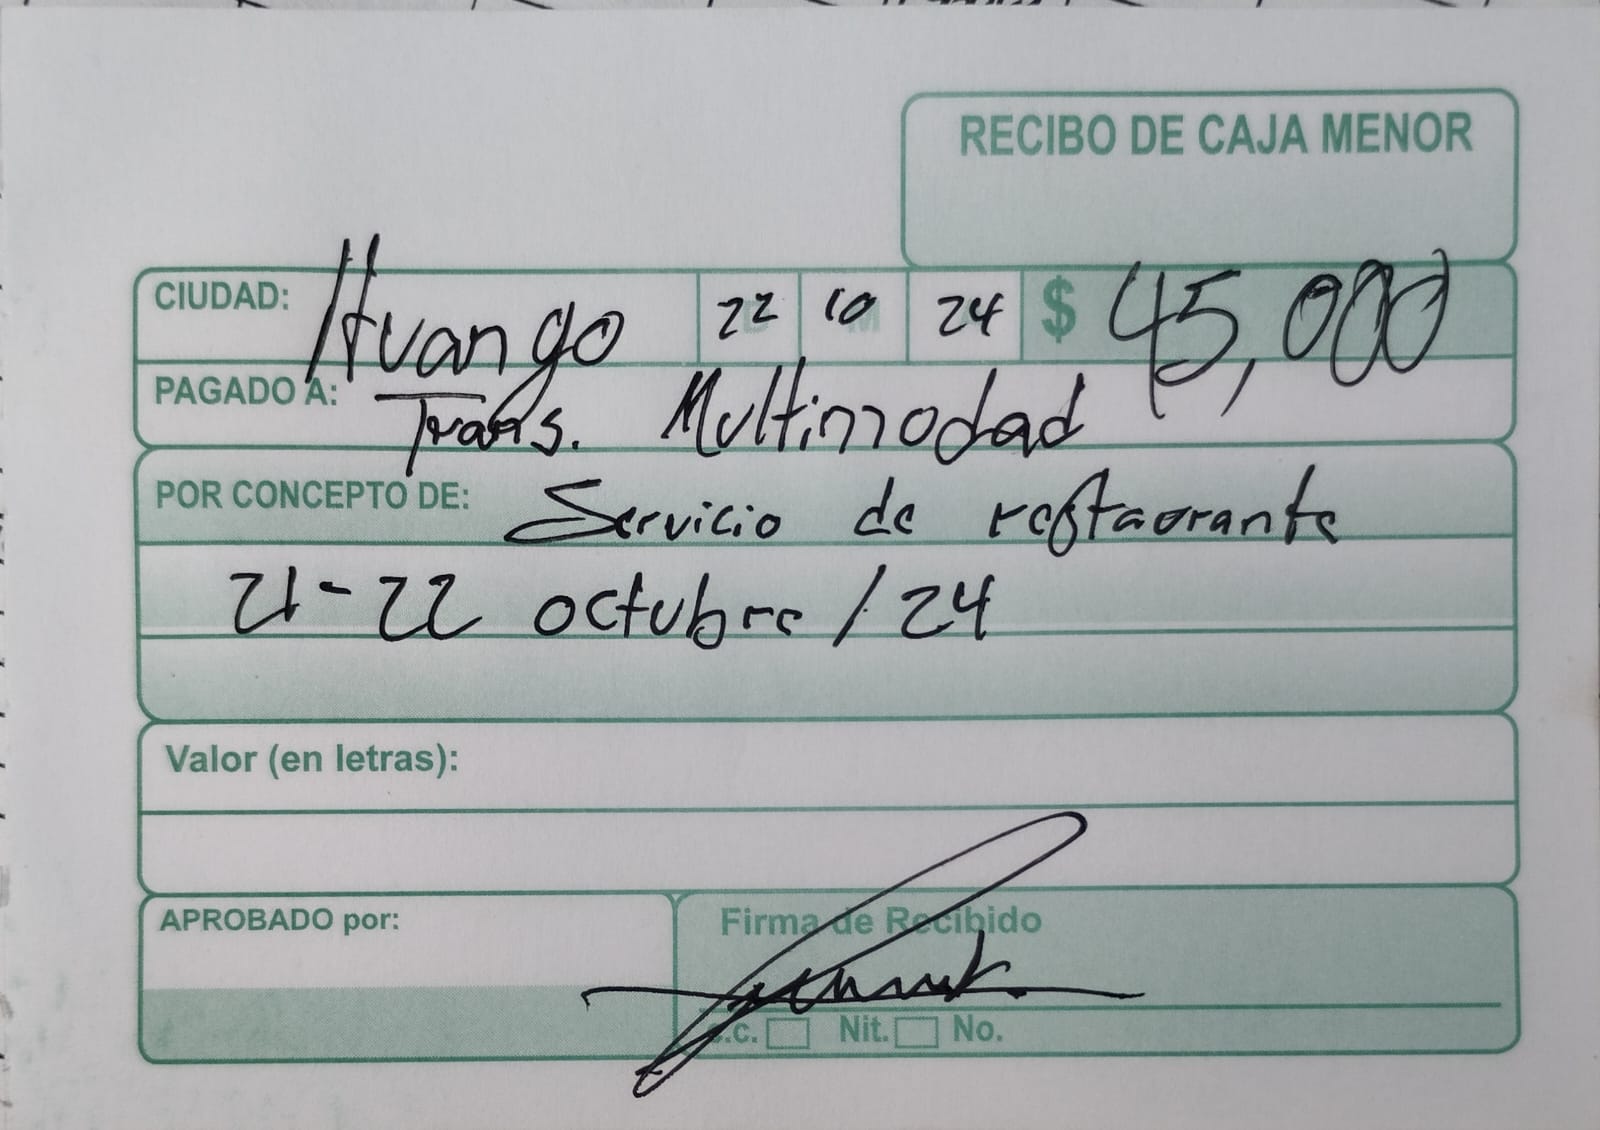 RECIBO DE CAJA MENOR
CIUDAD: Ituango 22 10 24 $ 45,000
PAGADO A: Trans. Multimodad
POR CONCEPTO DE: Servicio de restaorante
21-22 octubre / 24
Valor (en letras):
APROBADO por: Firma de Recibido
c.c. Nit. No.